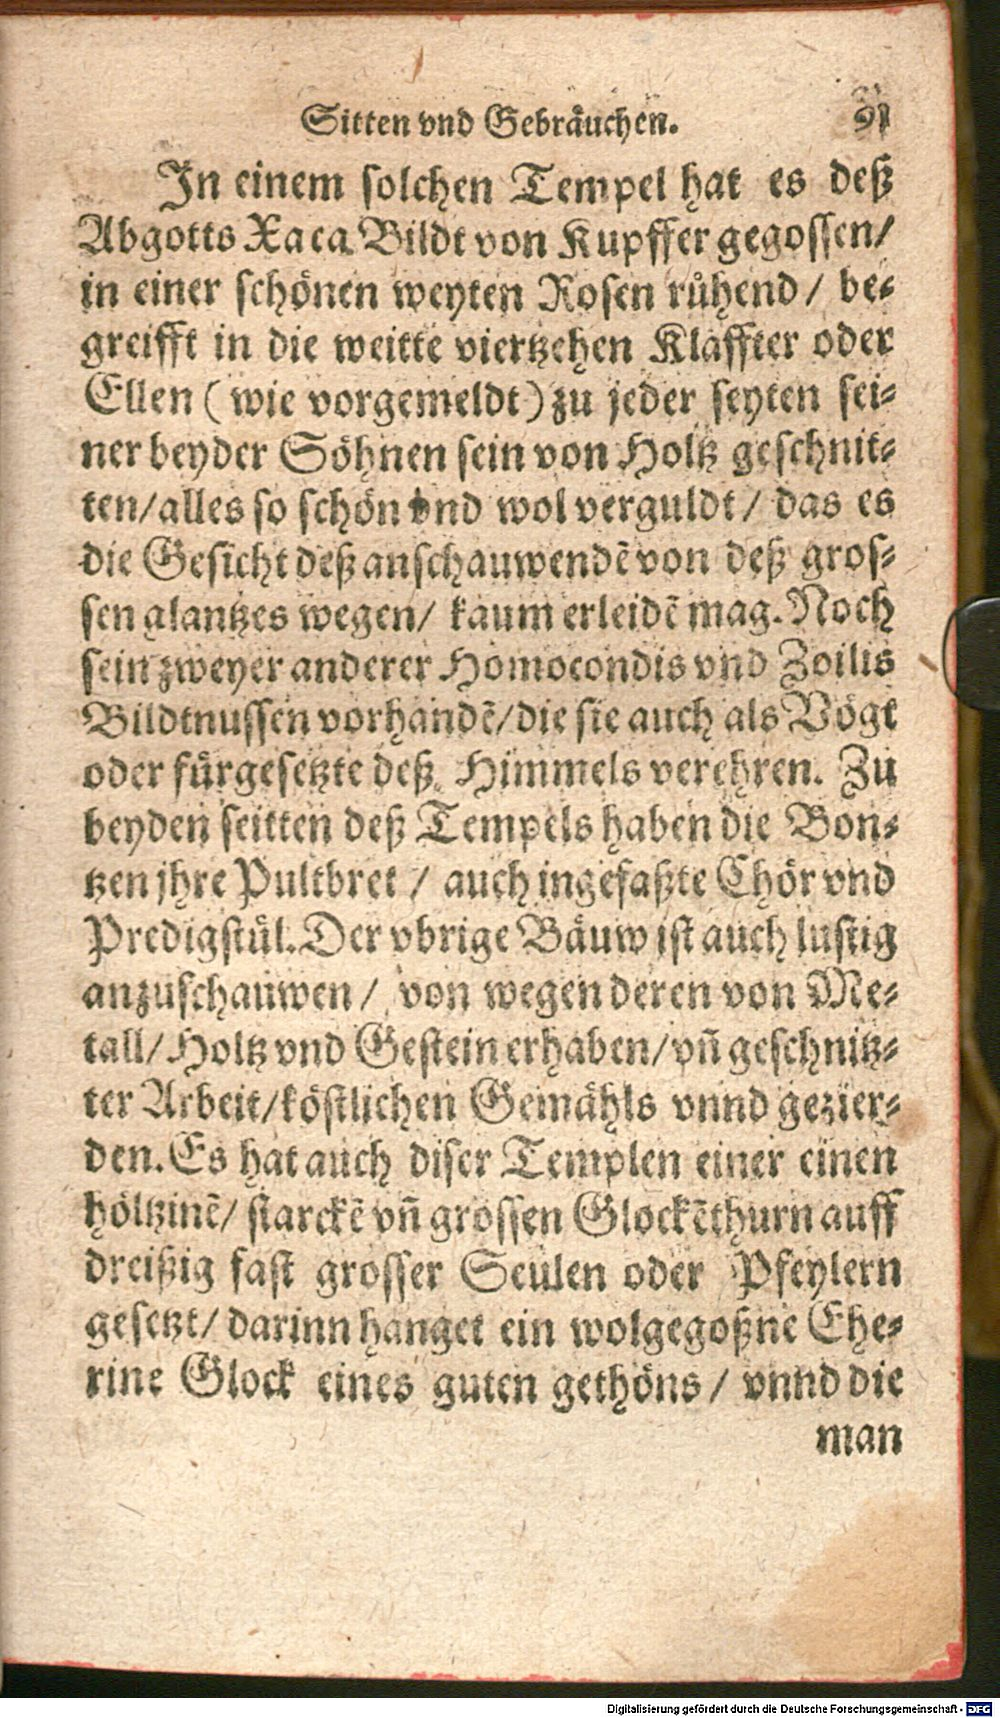 Sitten vnd Gebräuchen. 91
In einem solchen Tempel hat es deß
Abgotts Xaca Bildt von Kupffer gegossen/
in einer schönen weyten Rosen růhend/ be-
greifft in die weitte viertzehen Klaffter oder
Ellen (wie vorgemeldt) zu jeder seyten sei-
ner beyder Söhnen sein von Holtz geschnit-
ten/ alles so schön vnd wol verguldt/ das es
die Gesicht deß anschauwendẽ von deß gros-
sen glantzes wegen/ kaum erleidẽ mag. Noch
sein zweyer anderer Homocondis vnd Zoilis
Bildtnussen vorhandẽ/ die sie auch als Vögt
oder fürgesetzte deß Himmels verehren. Zu
beyden seitten deß Tempels haben die Bon-
tzen jhre Pultbret / auch ingefaßte Chör vnd
Predigstül. Der vbrige Bäuw ist auch lustig
anzuschauwen/ von wegen deren von Me-
tall/ Holtz vnd Gestein erhaben/ vñ geschnitz-
ter Arbeit/ köstlichen Gemähls vnnd gezier-
den. Es hat auch diser Templen einer einen
höltzinẽ/ starckẽ vñ grossen Glockẽthurn auff
dreißig fast grosser Seulen oder Pfeylern
gesetzt/ darinn hanget ein wolgegoßne Ehe-
rine Glock eines guten gethöns/ vnnd die
man
Digitalisierung gefördert durch die Deutsche Forschungsgemeinschaft - DFG